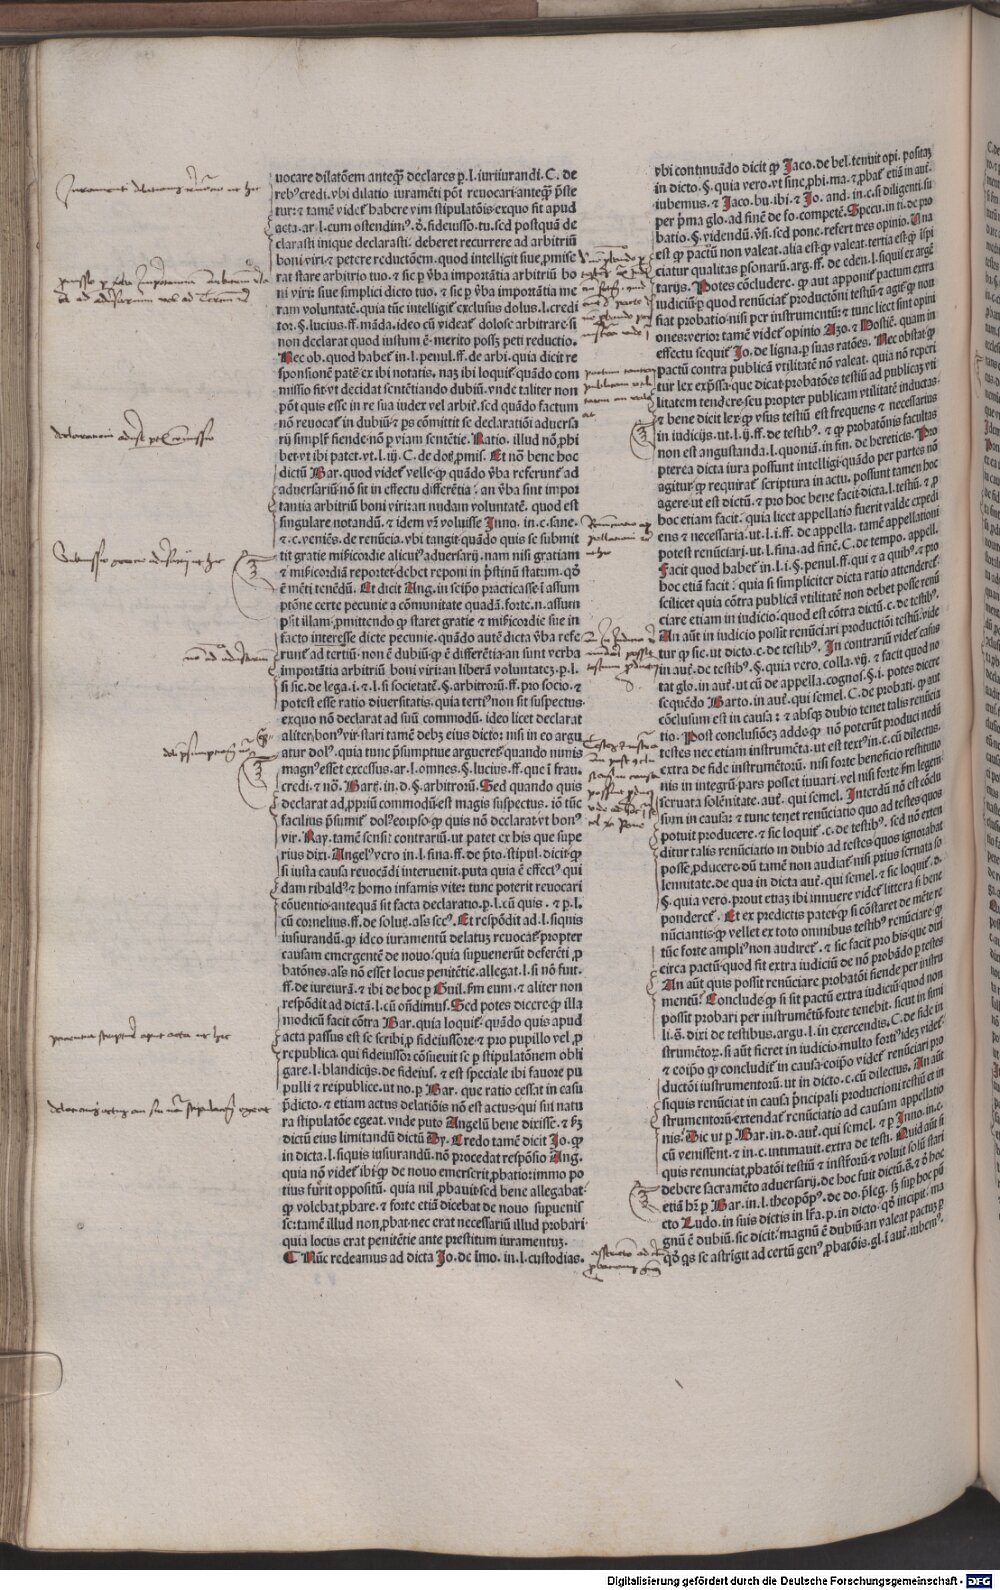 uocare dilatōem anteqȝ declares p.l. iurisiurandi. C. de
reb⁹ credi. vbi dilatio iuramēti pōt reuocari anteqȝ p̄ste
tur: ⁊ tamē videt̄ habere vim stipulatōis exquo fit apud
acta. ar. l. cum ostendim⁹. ff. fideiusso. tu. sed postquā de
clarasti inique declarasti: deberet recurrere ad arbitriū
boni viri. ⁊ petere reductōem. quod intelligit siue ꝓmise
rat stare arbitrio tuo. ⁊ sic p v̄ba importātia arbitriū bo
ni viri: siue simplici dicto tuo. ⁊ sic p v̄ba importātia me
ram voluntatē. quia tūc intelligit̄ exclusus dolus. l. credi
tor. §. lucius. ff. māda. ideo cū videat̄ dolose arbitrare si
non declarat quod iustum ē. merito possȝ peti reductio.
Nec ob. quod habet̄ in. l. penul. ff. de arbi. quia dicit re
sponsionē patē ex ibi notatis. naȝ ibi loquit̄ quādo com
missio fit vt decidat sentētiando dubiū. vnde taliter non
pōt quis esse in re sua iudex vel arbit̄. sed quādo factum
nō reuocat̄ in dubiū ⁊ ps cōmittit se declaratiōi aduersa
rij simplr̄ fiende nō p viam sentētie. Ratio. illud nō phi
bet̄. vt ibi patet. vt. l. ij. C. de dot̄. ꝓmis. Et nō bene hoc
dictū Bar. quod videt̄ velle ꝙ quādo v̄ba referunt̄ ad
aduersariū nō sit in effectu differētia: an v̄ba sint impor
tantia arbitriū boni viri: an nudam voluntatē. quod est
singulare notandū. ⁊ idem vȝ voluisse Inno. in. c. sane.
⁊. c. veniēs. de renūcia. vbi tangit quādo quis se submit
tit gratie mīcordie alicui⁹ aduersarij. nam nisi gratiam
⁊ misicordiā reportet debet reponi in p̄stinū statum. qð
ē mēti tenēdū. Et dicit Ang. in seipo practicasse ī assum
ptōne certe pecunie a cōmunitate quadā. forte. n. assum
psit illam. ꝓmittendo ꝙ staret gratie ⁊ misicordie sue in
facto interesse dicte pecunie. quādo autē dicta v̄ba refe
runt̄ ad tertiū. non ē dubiū ꝙ ē differētia an sunt verba
importātia arbitriū boni viri: an liberā voluntatē. p. l.
si sic. de lega. i. ⁊. l. si societatē. §. arbitrorū. ff. pro socio. ⁊
potest esse ratio diuersitatis. quia terti⁹ non sit suspectus
exquo nō declarat ad suū commodū. ideo licet declarat
aliter bon⁹ vir. stari tamē debȝ eius dicto: nisi in eo argu
atur dol⁹. quia tunc p̄sumptiue argueret̄ quando nimis
magn⁹ esset excessus. ar. l. omnes. §. lucius. ff. que ī frau.
credi. ⁊ nō. Bart. in. d. §. arbitrorū. Sed quando quis
declarat ad ꝓpriū commodū est magis suspectus. iō tūc
facilius p̄sumit̄ dol⁹ eoipso ꝙ quis nō declarat vt bon⁹
vir. Ray. tamē sensit contrariū. ut patet ex his que supe
rius dixi. Angel⁹ vero in. l. fina. ff. de p̄to. stipul. dicit ꝙ
si iusta causa reuocādi interuenit. puta quia ē effect⁹ qui
dam ribald⁹. ⁊ homo infamis vite: tunc poterit reuocari
cōuentio antequā sit facta declaratio. p. l. cū quis. ⁊ p. l.
cū cornelius. ff. de solut. als̄ scc⁹. Et respōdit ad. l. siquis
iusiurandū. ꝙ ideo iuramentū delatuȝ reuocat̄ propter
causam emergentē de nouo. quia supuenerūt deferēti ꝓ
batōnes. als̄ nō esset locus penitētie. allegat. l. si nō fuit.
ff. de iureiurā. ⁊ ibi de hoc p Guil. s̄m eum. ⁊ aliter non
respōdit ad dictā. l. cū on̄dimus. Sed potes dicere ꝙ illa
modicū facit cōtra Bar. quia loquit̄ quādo quis apud
acta passus est se scribi p fideiussore ⁊ pro pupillo vel ꝓ
republica. qui fideiussor cōsueuit se p stipulatōnem obli
gare. l. blandicijs. de fideius. ⁊ est speciale ibi fauore pu
pulli ⁊ reipublice. ut no. p Bar. que ratio cessat in casu
p̄dicto. ⁊ etiam actus delatiōis nō est actus qui sui natu
ra stipulatōe egeat. vnde puto Angelū bene dixisse. ⁊ hȝ
dictū eius limitandū dictū By. Credo tamē dicit Jo. ꝙ
in dicta. l. siquis iusiurandū. nō procedat respōsio Ang.
quia nō videt̄ ibi ꝙ de nouo emerserit ꝓbatio: immo po
tius fuerit oppositū. quia nil ꝓbauit sed bene allegabat
ꝙ volebat ꝓbare. ⁊ forte etiā dicebat de nouo supuenis
se: tamē illud non ꝓbat. nec erat necessariū illud probari
quia locus erat penitētie ante prestitum iuramentuȝ.
¶ Nūc redeamus ad dicta Jo. de īmo. in. l. custodias.
vbi continuādo dicit ꝙ Jaco. de bel. tenuit opi. positaȝ
in dicto. §. quia vero. vt sine ꝓhi. ma. ⁊ ꝓbat̄ etiā in aut̄.
iubemus. ⁊ Jaco. bu. ibi. ⁊ Jo. and. in. c. si diligenti. su
per p̄ma glo. ad finē de fo. compete. Specu. in ti. de pro
batio. §. videndū. v̄si. sed pone. refert tres opinio. Una
est ꝙ pactū non valeat. alia est ꝙ valeat. tertia est ꝙ īspi
ciatur qualitas psonarū. arg. ff. de eden. l. siqui ex argē
tarijs. Potes cōcludere. ꝙ aut apponit̄ pactum extra
iudiciū p quod renūciat̄ productōni testiū ⁊ agit̄ ꝙ non
fiat probatio nisi per instrumentū: ⁊ tunc licet sint opini
ones: verior tamē videt̄ opinio Azo. ⁊ Hostiē. quam in
effectu sequit̄ Jo. de ligna. p suas ratōes. Nec obstat ꝙ
pactū contra publicā vtilitatē nō valeat. quia nō reperi
tur lex exp̄ssa que dicat probatōes testiū ad publicaȝ vti
litatem tendere: seu propter publicam vtilitatē inductas.
⁊ bene dicit lex ꝙ vsus testiū est frequens ⁊ necessarius
in iudicijs. ut. l. ij. ff. de testib⁹. ⁊ ꝙ probatōnis facultas
non est angustanda. l. quoniā. in fin. de hereticis. Pro
pterea dicta iura possunt intelligi quādo per partes nō
agitur ꝙ requirat̄ scriptura in actu. possunt tamen hoc
agere ut est dictū. ⁊ pro hoc bene facit dicta. l. testiū. ⁊ ꝓ
hoc etiam facit. quia licet appellatio fuerit valde expedi
ens ⁊ necessaria. ut. l. i. ff. de appella. tamē appellationi
potest renūciari. ut. l. fina. ad finē. C. de tempo. appell.
Facit quod habet̄ in. l. i. §. penul. ff. qui ⁊ a quib⁹. ⁊ pro
hoc etiā facit: quia si simpliciter dicta ratio attenderet̄
scilicet quia cōtra publicā vtilitatē non debet posse renū
ciare etiam in iudicio. quod est cōtra dictū. c. de testib⁹.
An aūt in iudicio possit renūciari productiōi testiū. vide
tur ꝙ sic. ut dicto. c. de testib⁹. In contrariū videt̄ casus
in aut̄. de testib⁹. §. quia vero. colla. vij. ⁊ facit quod no
tat glo. in aut̄. ut cū de appella. cognos. §. i. potes dicere
sequēdo Barto. in aut̄. qui semel. C. de probati. ꝙ aut
cōclusum est in causa: ⁊ absqȝ dubio tenet talis renūcia
tio. Post conclusionēȝ addo ꝙ nō poterūt produci nedū
testes nec etiam instrumēta. ut est text⁹ in. c. cū dilectus.
extra de fide instrumētorū. nisi forte beneficio restitutio
nis in integrū pars posset iuuari. vel nisi forte s̄m legem
seruata solēnitate. aut̄. qui semel. Interdū nō est cōclu
sum in causa: ⁊ tunc tenet renūciatio quo ad testes quos
potuit producere. ⁊ sic loquit̄. c. de testib⁹. sed nō exten
ditur talis renūciatio in dubio ad testes quos ignorabat
posse ꝓducere. dū tamē non audiat̄ nisi prius seruata so
lennitate. de qua in dicta aut̄. qui semel. ⁊ sic loquit̄. d.
§. quia vero. prout etiaȝ ibi innuere videt̄ littera si bene
ponderet̄. Et ex predictis patet ꝙ si cōstaret de mēte re
nūciantis ꝙ vellet ex toto omnibus testib⁹ renūciare. ꝙ
tūc forte ampli⁹ non audiret̄. ⁊ sic facit pro his que dixi
circa pactū quod fit extra iudiciū de nō probādo p testes
An aūt quis possit renūciare probatōi fiende per instru
mentū. Conclude ꝙ si sit pactū extra iudiciū quod non
possit probari per instrumētū forte tenebit. sicut in simi
li. s. dixi de testibus. argu. l. in exercendis. C. de fide in
strumētoꝝ. si aūt fieret in iudicio multo forti⁹ ideȝ videt̄.
⁊ eoipo ꝙ concludit̄ in causa eoipo videt̄ renūciari pro
ductōi iustrumentorū. ut in dicto. c. cū dilectus. An aūt
si quis renūciat in causa p̄ncipali productioni testiū et in
strumentorū extendat̄ renūciatio ad causam appellatio
nis. Dic ut p Bar. in. d. aut̄. qui semel. ⁊ p Inno. in. c.
cū venissent. ⁊ in. c. intimauit. extra de testi. Quid aūt si
quis renunciat ꝓbatōi testiū ⁊ instr̄orū ⁊ voluit solū stari
debere sacramēto aduersarij. de hoc fuit dictū. s. ⁊ v̄o hoc
etiā hr̄ p Bar. in. l. theopōp⁹. de do. p̄leg. sȝ sup hoc pū
cto Ludo. in suis dictis in lr̄a. p. in dicto. qð incipit. ma
gnū ē dubiū. sic dicit. magnū ē dubiū an valeat pactuȝ p
qð qs se astrigit ad certū gen⁹ ꝓbatōis. gl. ī aut̄. iubem⁹.
Digitalisierung gefördert durch die Deutsche Forschungsgemeinschaft - DFG